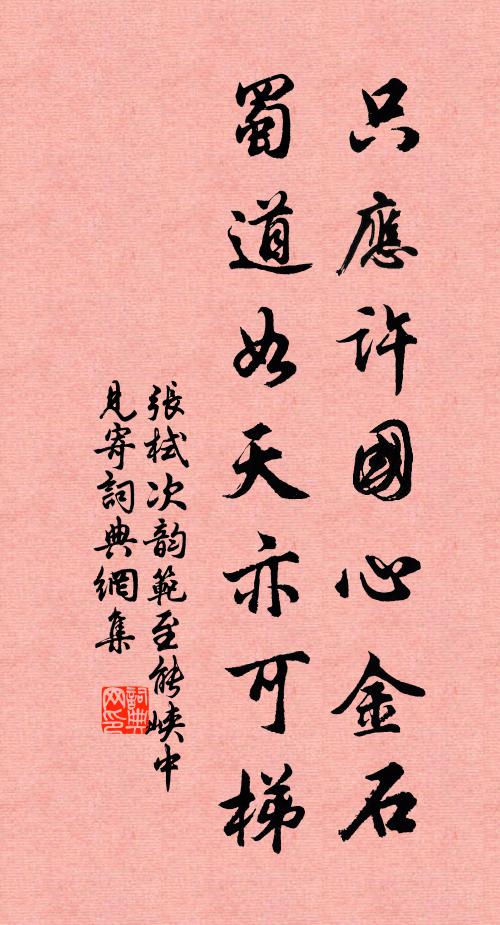 只應許國心金石
蜀道如天亦可梯
張栻次韵範至能峽中
見寄詞典網集
詞典
网印